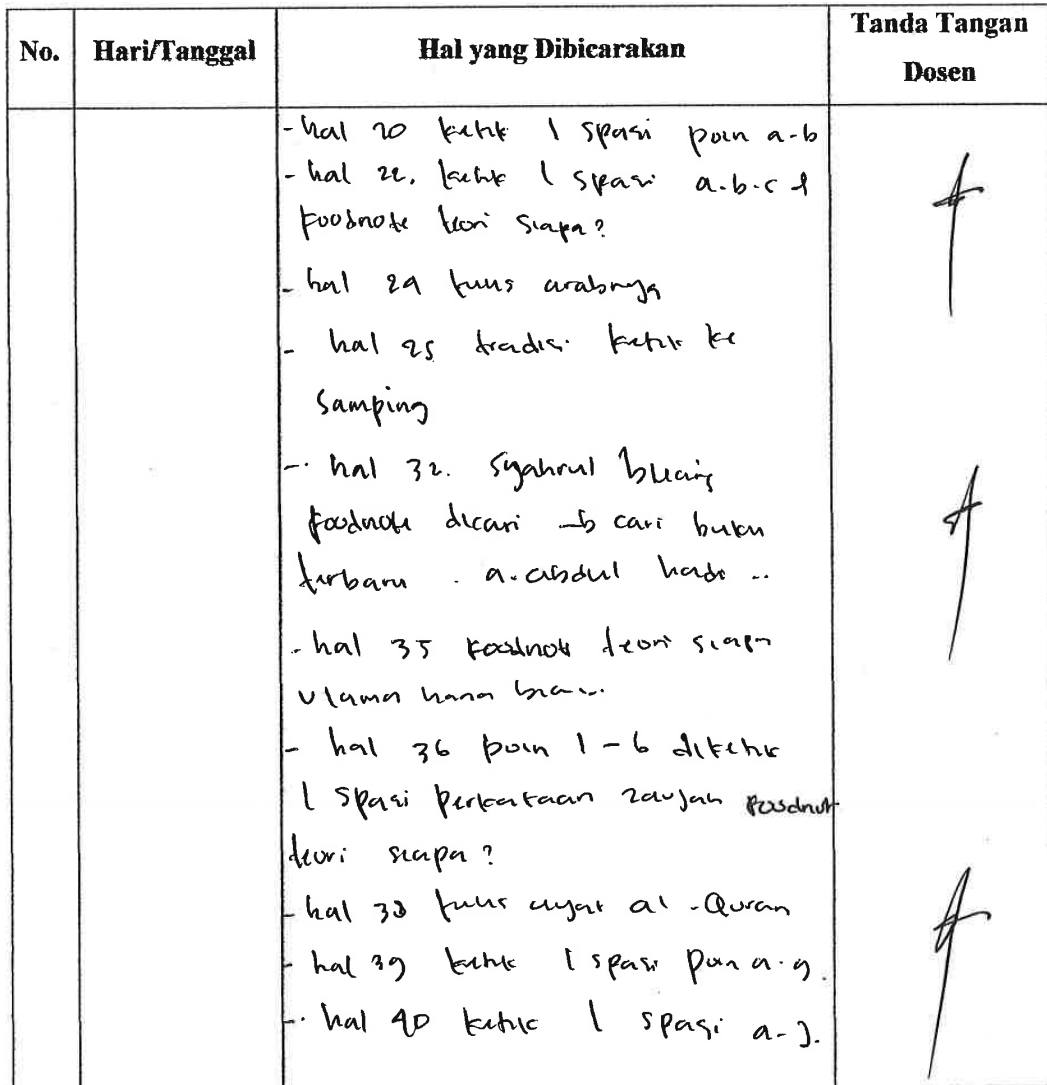 No. Hari/Tanggal Hal yang Dibicarakan Tanda Tangan Dosen
- hal 20 ketik 1 spasi poin a-b
- hal 22. ketik 1 spasi a.b.c d
foodnote teori siapa?
- hal 24 tulis arabnya
- hal 25 tradisi ketik ke
samping
- hal 32. Syahrul
foodnote dicari cari buku
terbaru . a. abdul hadi ..
- hal 35 foodnote teori siapa
ulama hana
- hal 36 poin 1-6 diketik
1 spasi perkataan zaujah foodnot
teori siapa?
- hal 38 tulis ayat al-Quran
- hal 39 ketik 1 spasi poin a-g.
- hal 40 ketik 1 spasi a-j.